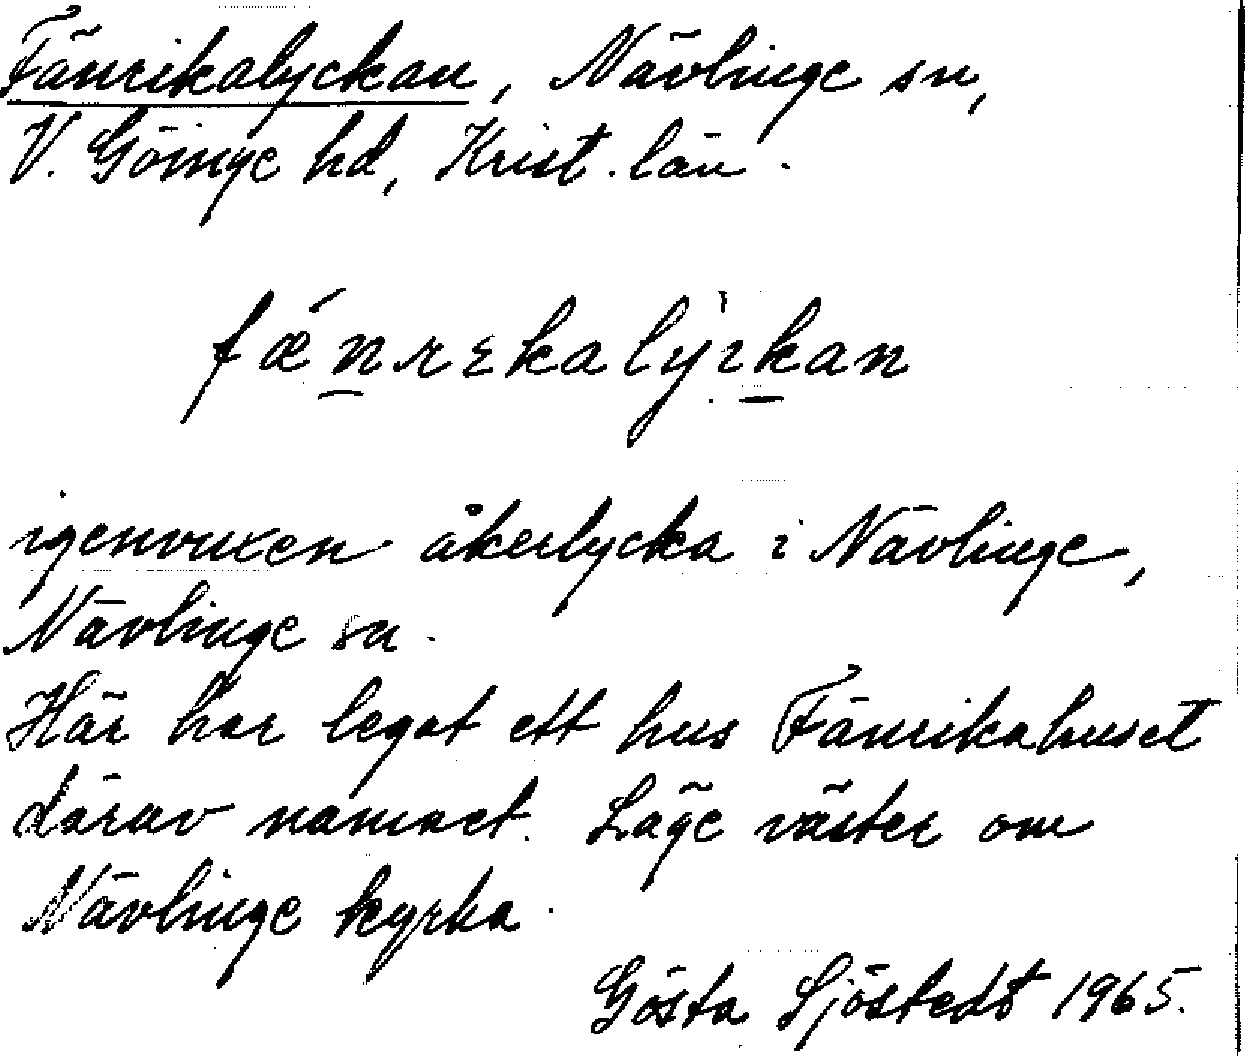 Fänrikalyckan, Nävlinge sn,
V. Göinge hd, Krist. län.
fǽnrɛkalỳkan
igenvuxen åkerlycka i Nävlinge,
Nävlinge sn.
Här har legat ett hus Fänrikahuset
därav namnet. Läge väster om
Nävlinge kyrka.
Gösta Sjöstedt 1965.